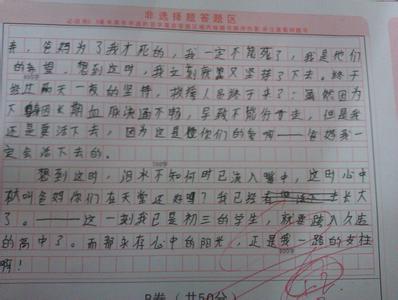 非选择题答题区
来，爸妈为了我才死的，我一定不能死了，我是他们
的希望，想到这时，我立刻又坚持了下去。终于
经过两天一夜的坚持，救援人员终于来了：虽然因为
下长期血脉流通不畅，导致不能行走，但是我
还是要活下去，因为这是你们的——爸妈我一
定会活下去的。
想到这时，泪水不知何时已流入嘴中，这时心中
就叫爸妈你们在天堂还好吗？我已经长大
了。——这一刻我已是初三的学生，就要踏入久违
的高中了。而那朵在心中的阳光，正是我一路的支柱
啊！
B卷（共50分）